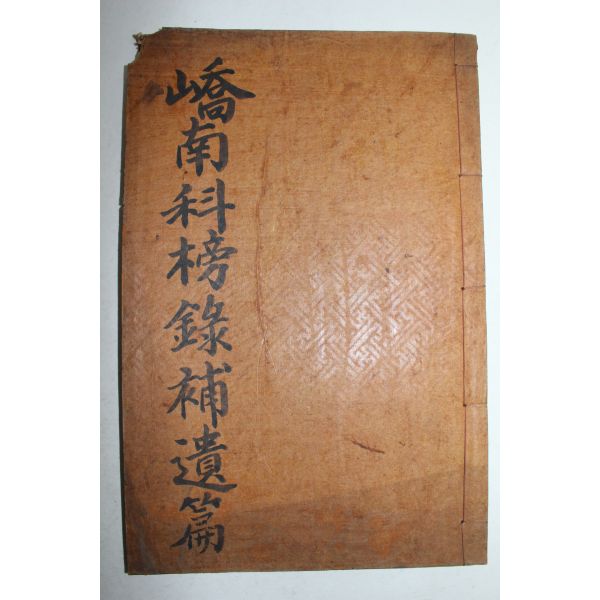 嶠南科榜錄補遺篇